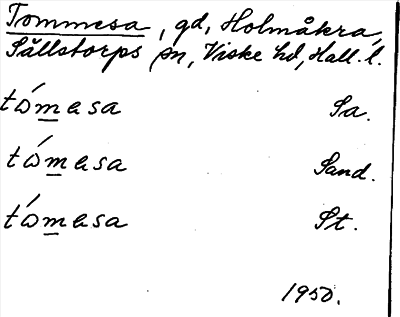 Tommesa, gd, Holmåkra,
Sällstorps sn, Viske hd, Hall. l.
tώm̲esa Sa.
tώm̲esa Sand.
tώm̲esa St.
1950.